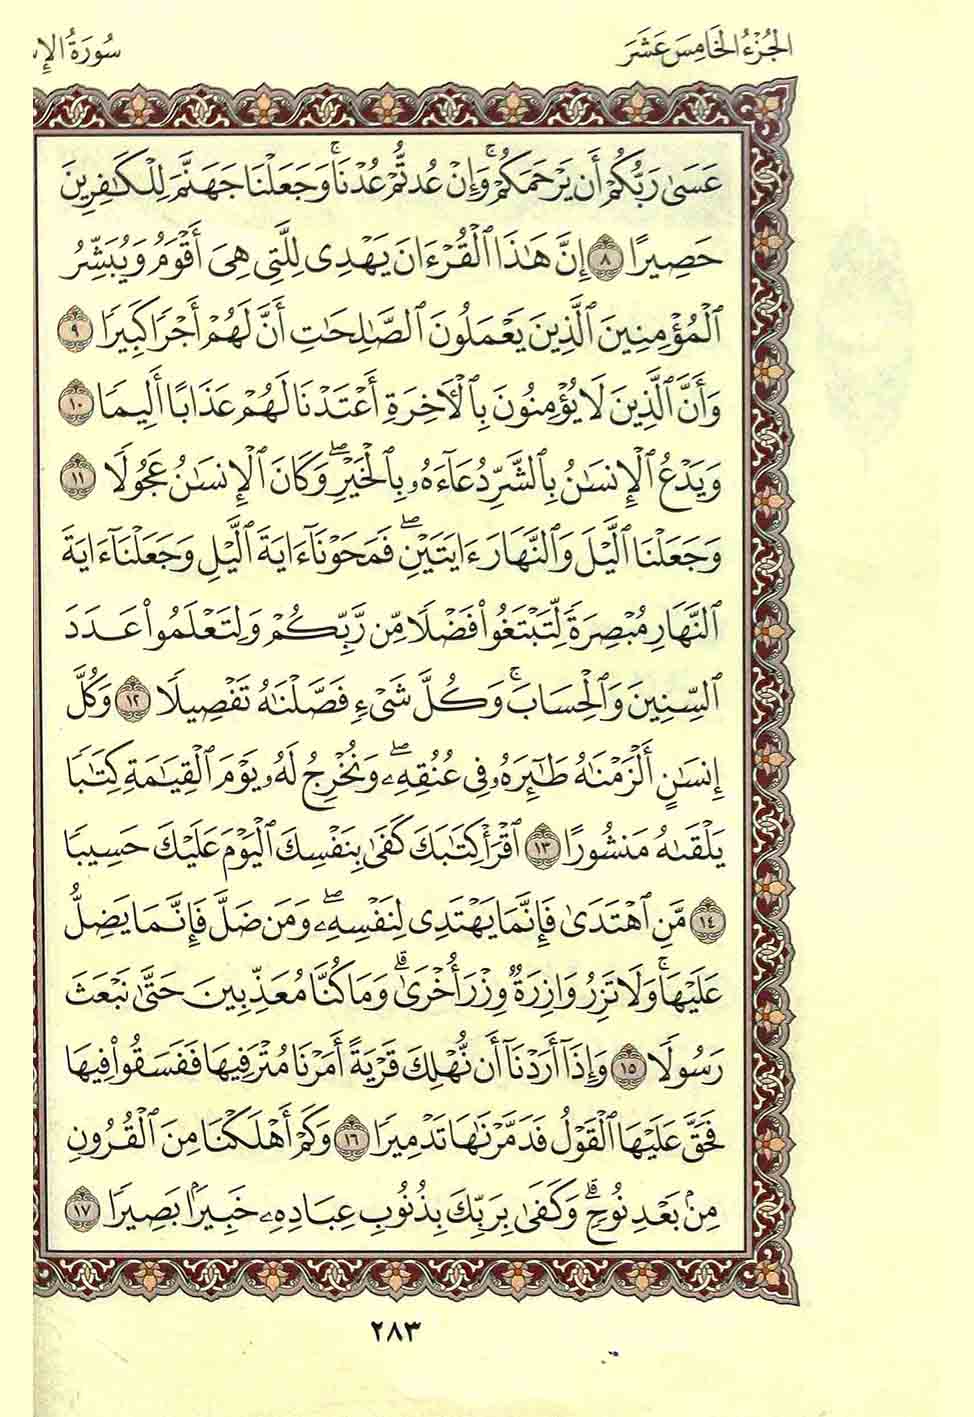 الجُزْءُ الخَامِسَ عَشَرَ
سُورَةُ الإِس
عَسَىٰ رَبُّكُمْ أَن يَرْحَمَكُمْ ۚ وَإِنْ عُدتُّمْ عُدْنَا ۚ وَجَعَلْنَا جَهَنَّمَ لِلْكَـٰفِرِينَ
حَصِيرًا ٨ إِنَّ هَـٰذَا ٱلْقُرْءَانَ يَهْدِى لِلَّتِى هِىَ أَقْوَمُ وَيُبَشِّرُ
ٱلْمُؤْمِنِينَ ٱلَّذِينَ يَعْمَلُونَ ٱلصَّـٰلِحَـٰتِ أَنَّ لَهُمْ أَجْرًا كَبِيرًا ٩
وَأَنَّ ٱلَّذِينَ لَا يُؤْمِنُونَ بِٱلْـَٔاخِرَةِ أَعْتَدْنَا لَهُمْ عَذَابًا أَلِيمًا ١٠
وَيَدْعُ ٱلْإِنسَـٰنُ بِٱلشَّرِّ دُعَآءَهُۥ بِٱلْخَيْرِ ۖ وَكَانَ ٱلْإِنسَـٰنُ عَجُولًا ١١
وَجَعَلْنَا ٱلَّيْلَ وَٱلنَّهَارَ ءَايَتَيْنِ ۖ فَمَحَوْنَآ ءَايَةَ ٱلَّيْلِ وَجَعَلْنَآ ءَايَةَ
ٱلنَّهَارِ مُبْصِرَةً لِّتَبْتَغُوا۟ فَضْلًا مِّن رَّبِّكُمْ وَلِتَعْلَمُوا۟ عَدَدَ
ٱلسِّنِينَ وَٱلْحِسَابَ ۚ وَكُلَّ شَىْءٍ فَصَّلْنَـٰهُ تَفْصِيلًا ١٢ وَكُلَّ
إِنسَـٰنٍ أَلْزَمْنَـٰهُ طَـٰٓئِرَهُۥ فِى عُنُقِهِۦ ۖ وَنُخْرِجُ لَهُۥ يَوْمَ ٱلْقِيَـٰمَةِ كِتَـٰبًا
يَلْقَىٰهُ مَنشُورًا ١٣ ٱقْرَأْ كِتَـٰبَكَ كَفَىٰ بِنَفْسِكَ ٱلْيَوْمَ عَلَيْكَ حَسِيبًا
١٤ مَّنِ ٱهْتَدَىٰ فَإِنَّمَا يَهْتَدِى لِنَفْسِهِۦ ۖ وَمَن ضَلَّ فَإِنَّمَا يَضِلُّ
عَلَيْهَا ۚ وَلَا تَزِرُ وَازِرَةٌ وِزْرَ أُخْرَىٰ ۗ وَمَا كُنَّا مُعَذِّبِينَ حَتَّىٰ نَبْعَثَ
رَسُولًا ١٥ وَإِذَآ أَرَدْنَآ أَن نُّهْلِكَ قَرْيَةً أَمَرْنَا مُتْرَفِيهَا فَفَسَقُوا۟ فِيهَا
فَحَقَّ عَلَيْهَا ٱلْقَوْلُ فَدَمَّرْنَـٰهَا تَدْمِيرًا ١٦ وَكَمْ أَهْلَكْنَا مِنَ ٱلْقُرُونِ
مِنۢ بَعْدِ نُوحٍ ۗ وَكَفَىٰ بِرَبِّكَ بِذُنُوبِ عِبَادِهِۦ خَبِيرًۢا بَصِيرًا ١٧
٢٨٣